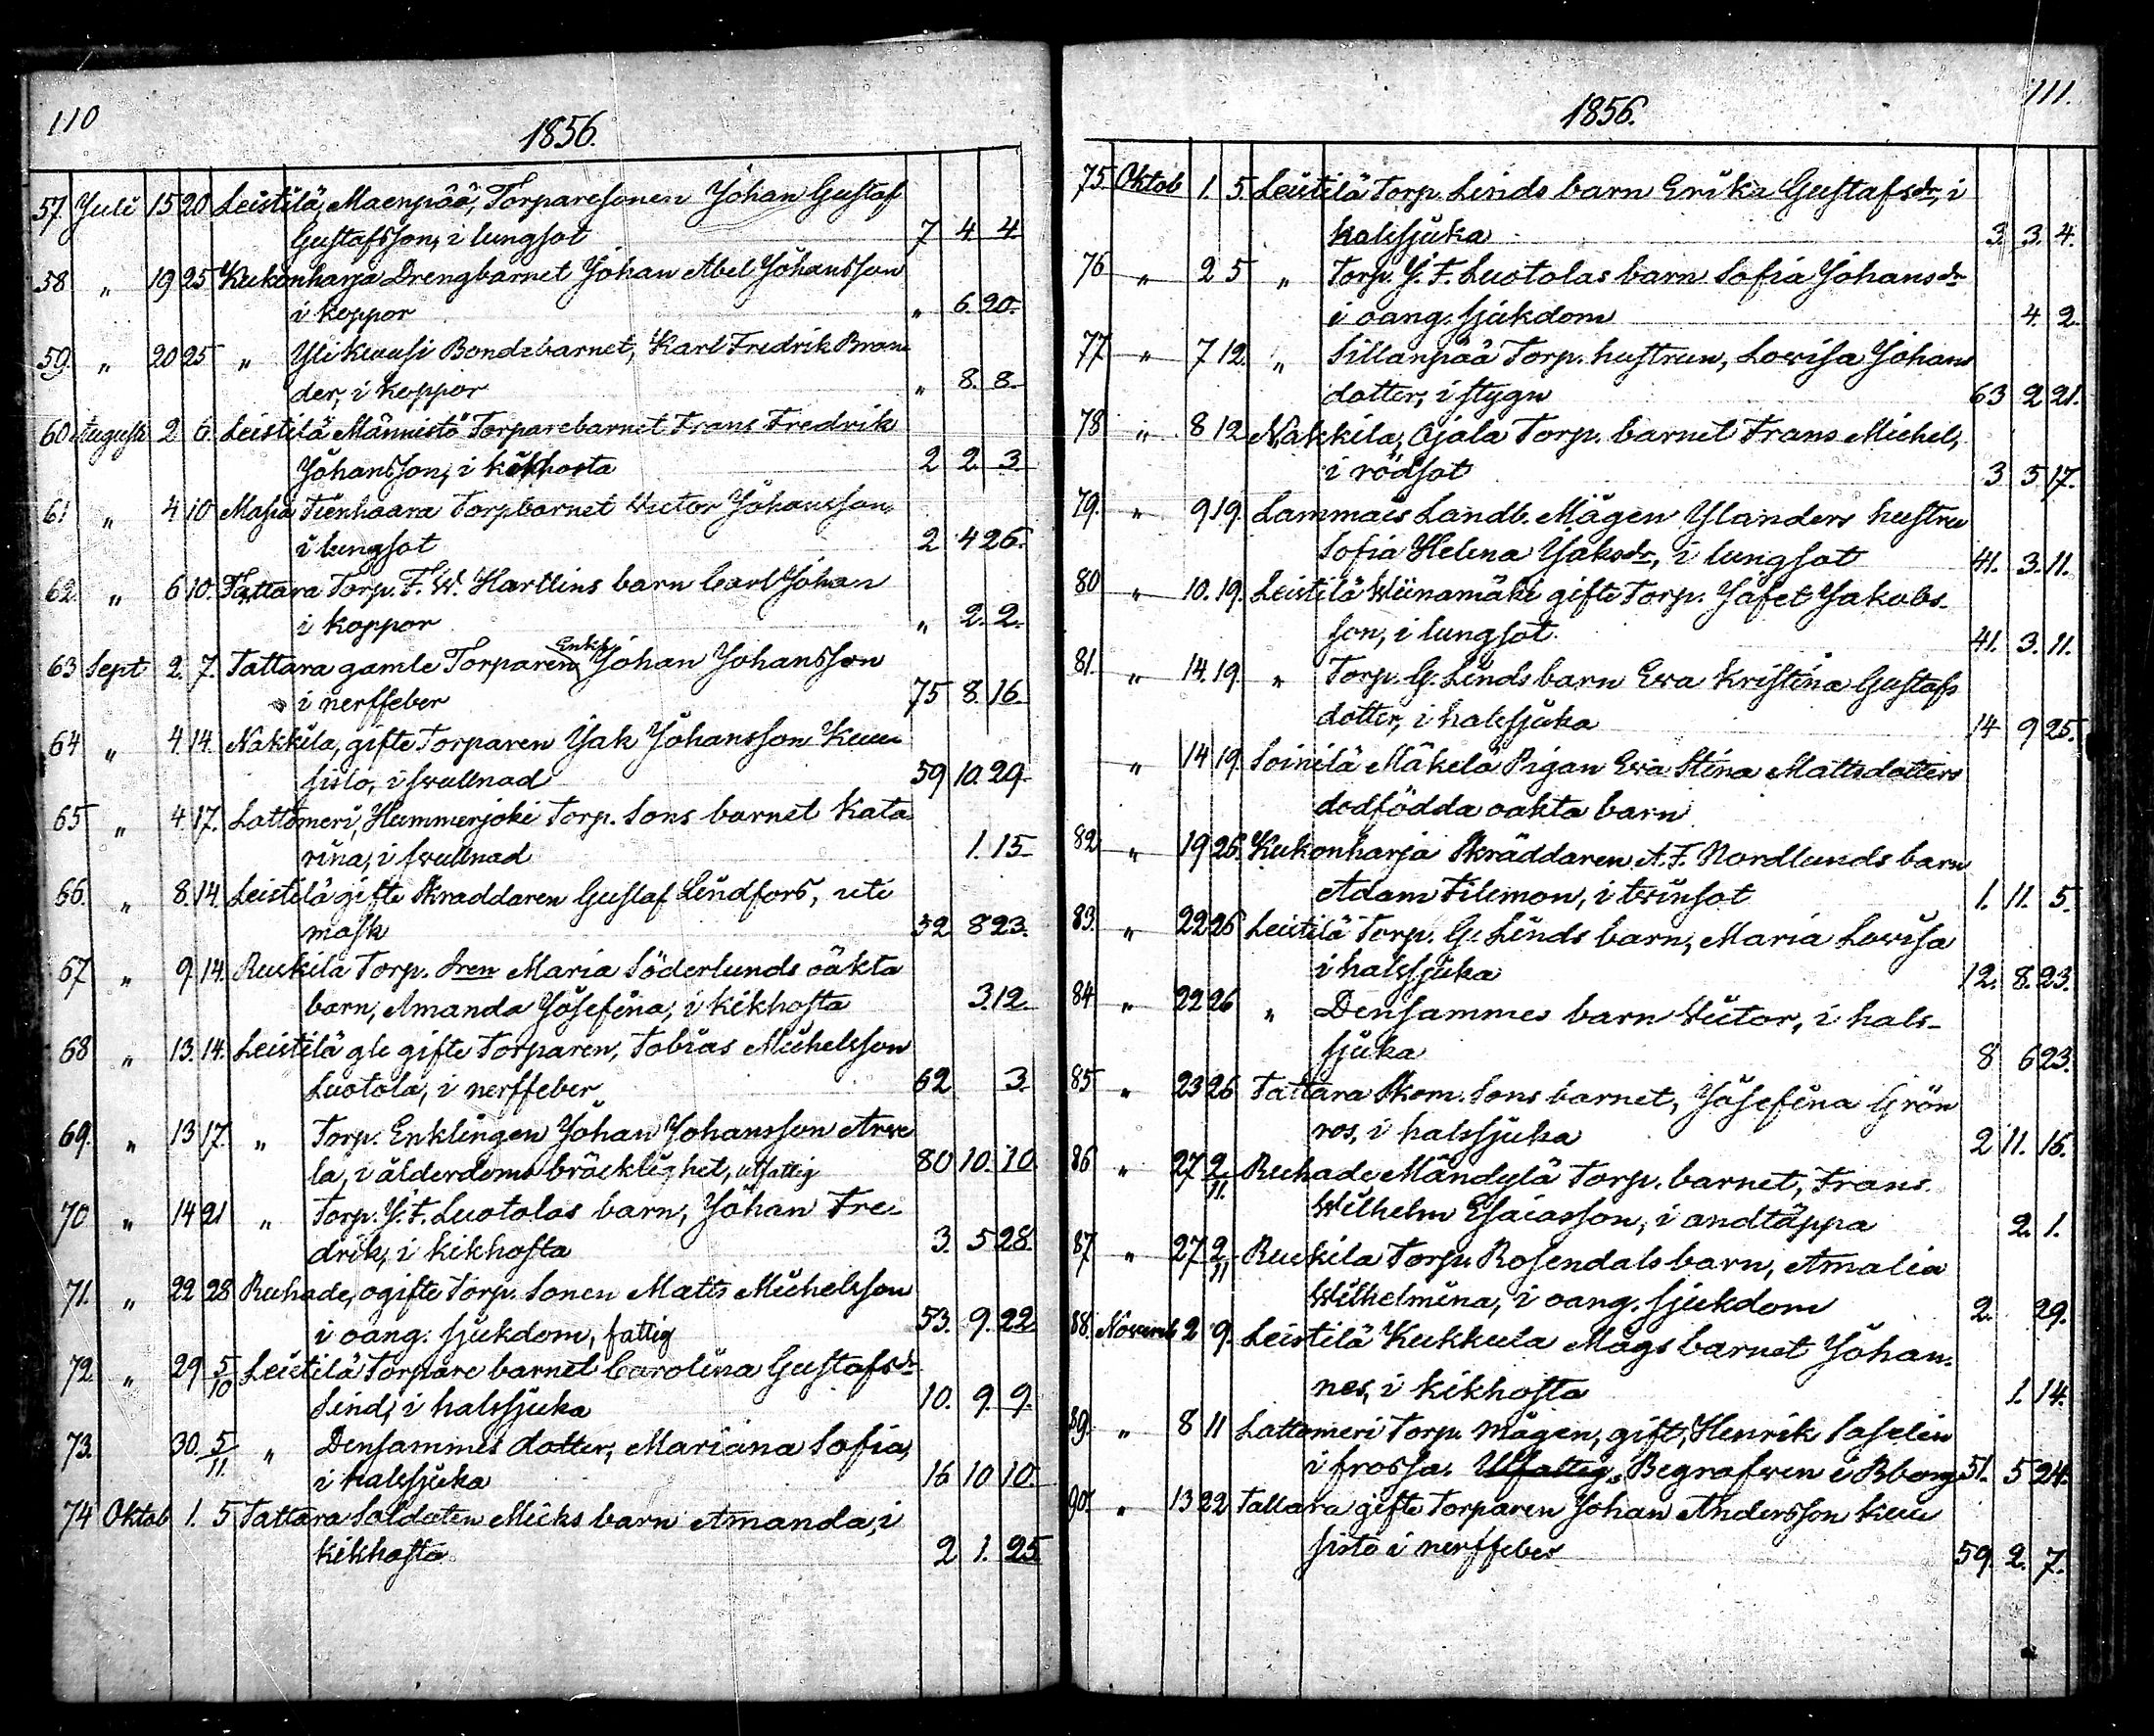 110
1856.
57. Juli 15 20 Leistilä, Maenpää, Torparesonen Johan Gustaf
Gustafsson, i lungsot 7 4 4.
58 " 19 25 Kukonharja Drengbarnet Johan Abel Johansson
i koppor " 6. 20.
59. " 20 25 " Yli Kuusi Bondebarnet, Karl Fredrik Bran
der, i koppor " 8. 8.
60 Augusti 2 6. Leistilä Männistö Torparebarnet Frans Fredrik
Johansson, i kikhosta 2 2 3
61 " 4 10 Masia Tienhaara Torpbarnet Victor Johansson,
i lungsot 2 4 26.
62. " 6 10. Tattara Torp. F. W. Hartlins barn Carl Johan
i koppor " 2. 2.
63 Sept 2. 7. Tattara gamle Torparen Enkl. Johan Johansson
i nerffeber 75 8. 16.
64 " 4 14. Nakkila, gifte Torparen Isak Johansson Kuu
sisto, i svullnad 59 10. 29.
65 " 4. 17. Lattomeri, Hummerjoki Torp. Sons barnet Kata
rina, i svullnad 1. 15
66. " 8. 14. Leistilä gifte Skraddaren Gustaf Lindfors, uti
mask 32 8 23.
67 " 9. 14. Ruskila Torp. Dren Maria Söderlunds oäkta
barn, Amanda Josefina, i kikhosta 3. 12.
68 " 13. 14. Leistilä gle gifte Torparen, Tobias Michelsson
Luotola, i nerffeber 62 3
69. " 13 17. " Torp. Enklingen Johan Johansson Arve
la, i ålderdoms bräcklighet, utfattig 80 10. 10.
70 " 14 21 " Torp. J. F. Luotolas barn, Johan Fre
drik, i kikhosta 3. 5 28.
71. " 22 28 Ruhade, ogifte Torp. Sonen Matts Michelsson
i oang. sjukdom, fattig 53. 9. 22.
72 " 29 5/10 Leistilä Torpare barnet Carolina Gustafsdr
Lind, i halssjuka 10. 9. 9.
73. 30. 5/11. " Densammes dotter, Mariana Sofia,
i halssjuka 16 10 10.
74 Oktob 1. 5 Tattara Soldaten Micks barn Amanda, i
kikhosta 2 1. 25
111.
1856.
75. Oktob 1. 5. Leistilä Torp. Linds barn Erika Gustafsdr, i
halssjuka 3. 3. 4.
76 " 2 5 " Torp. J. F. Luotolas barn Sofia Johansdr
i oang. sjukdom 4. 2.
77 " 7 12. " Sillanpää Torp. hustrun, Lovisa Johans
dotter, i stygn 63 2 21.
78 " 8 12 Nakkila, Ojala Torp. barnet Frans Michel,
i rödsot 3 5 17.
79. " 9 19. Lammais Landb. Mågen Ylanders hustru
Sofia Helena Isaksdr, i lungsot 41. 3. 11.
80 " 10. 19. Leistilä Wiinamäki gifte Torp. Jafet Jakobs
son, i lungsot. 41. 3. 11.
81. " 14. 19 " Torp. G. Linds barn Eva Kristina Gustafs
dotter, i halssjuka 14 9 25.
" 14 19. Soinila Mäkelä Pigan Eva Stina Mattsdotters
dodfödda oakta barn
82 " 19 26. Kukonharja Skräddaren A. F. Nordlunds barn
Adam Filemon, i tvinsot 1. 11. 5.
83. " 22 26 Leistilä Torp. G. Linds barn, Maria Lovisa
i halssjuka 12. 8. 23.
84 " 22 26 " Densammes barn Victor, i hals-
sjuka 8 6 23.
85 " 23 26 Tattara Skom. Sons barnet, Josefina Grön
ros, i halssjuka 2 11. 16.
86 " 27 2/11. Ruhade Mändylä Torp. barnet, Frans
Wilhelm Esaiasson, i andtäppa 2. 1.
87 " 27 2/11 Ruskila Torp. Rosendals barn, Amalia
Wilhelmina, i oang. sjukdom 2. 29.
88. Novemb 2 9. Leistilä Kukkula Mågs barnet Johan-
nes, i kikhosta 1. 14.
89. " 8 11 Lattomeri Torp. mågen, gift, Henrik Saselin
i frossa. Utfattig. Begrafven i Bborg 51. 5 24.
90. " 13 22 Tattara gifte Torparen Johan Andersson Kuu
sisto i nerffeber 59. 2. 7.